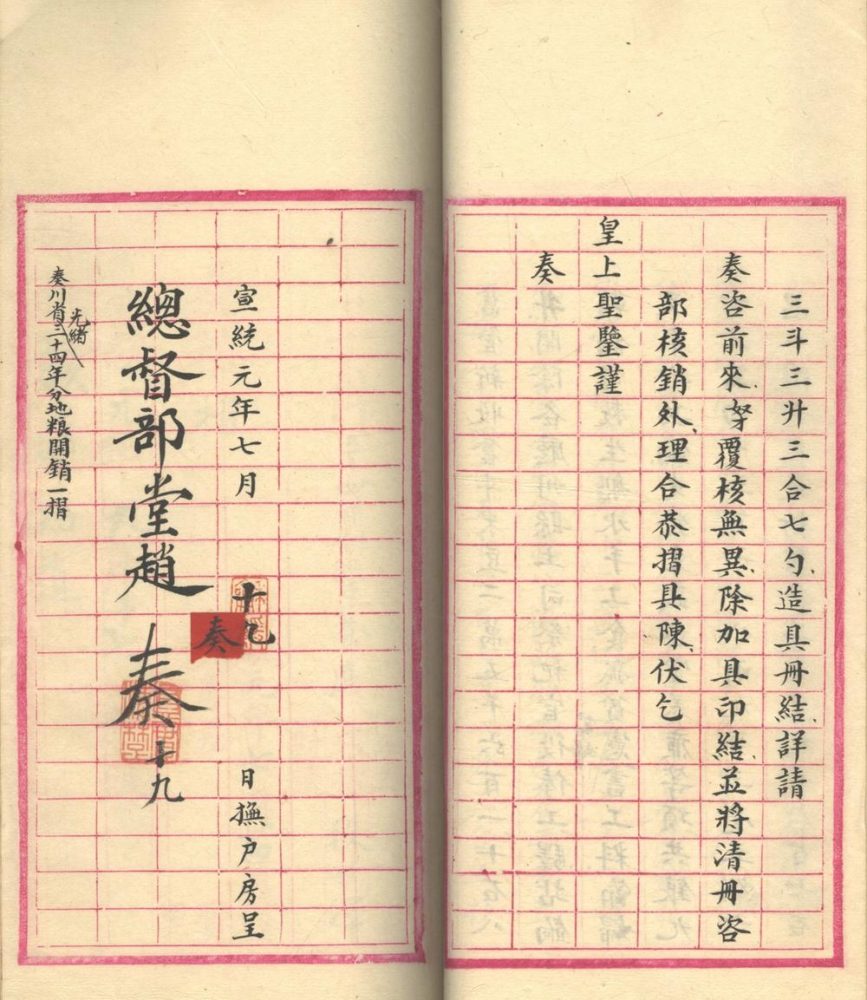 三斗三升三合七勺造具冊結詳請
奏咨前來奴才覆核無異除加具印結並將清冊咨
部核銷外理合恭摺具陳伏乞
皇上聖鑒謹
奏
宣統元年七月 十九 日撫户房呈
奏
總督部堂趙 奏 十九
奏川省光緒三十四年分地粮開銷一摺